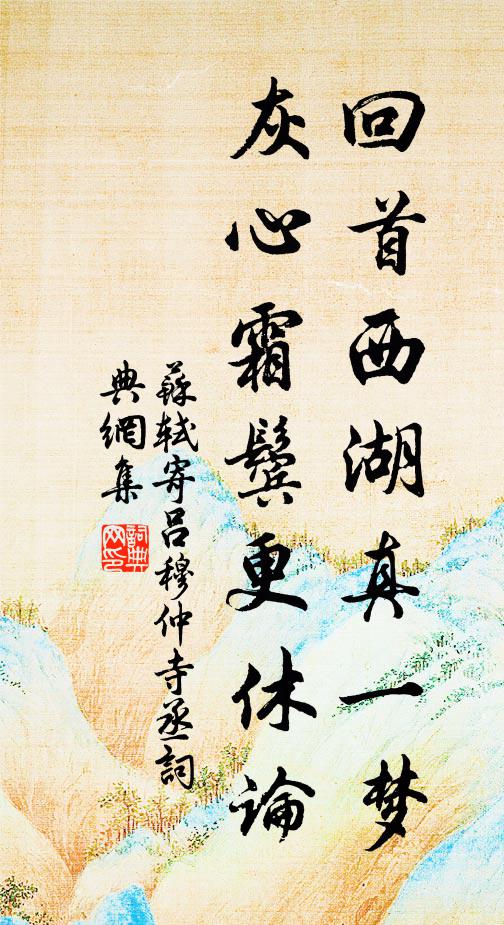 回首西湖真一梦
灰心霜鬓更休论
蘇軾寄吕穆仲寺丞詞
典網集
詞典
网印